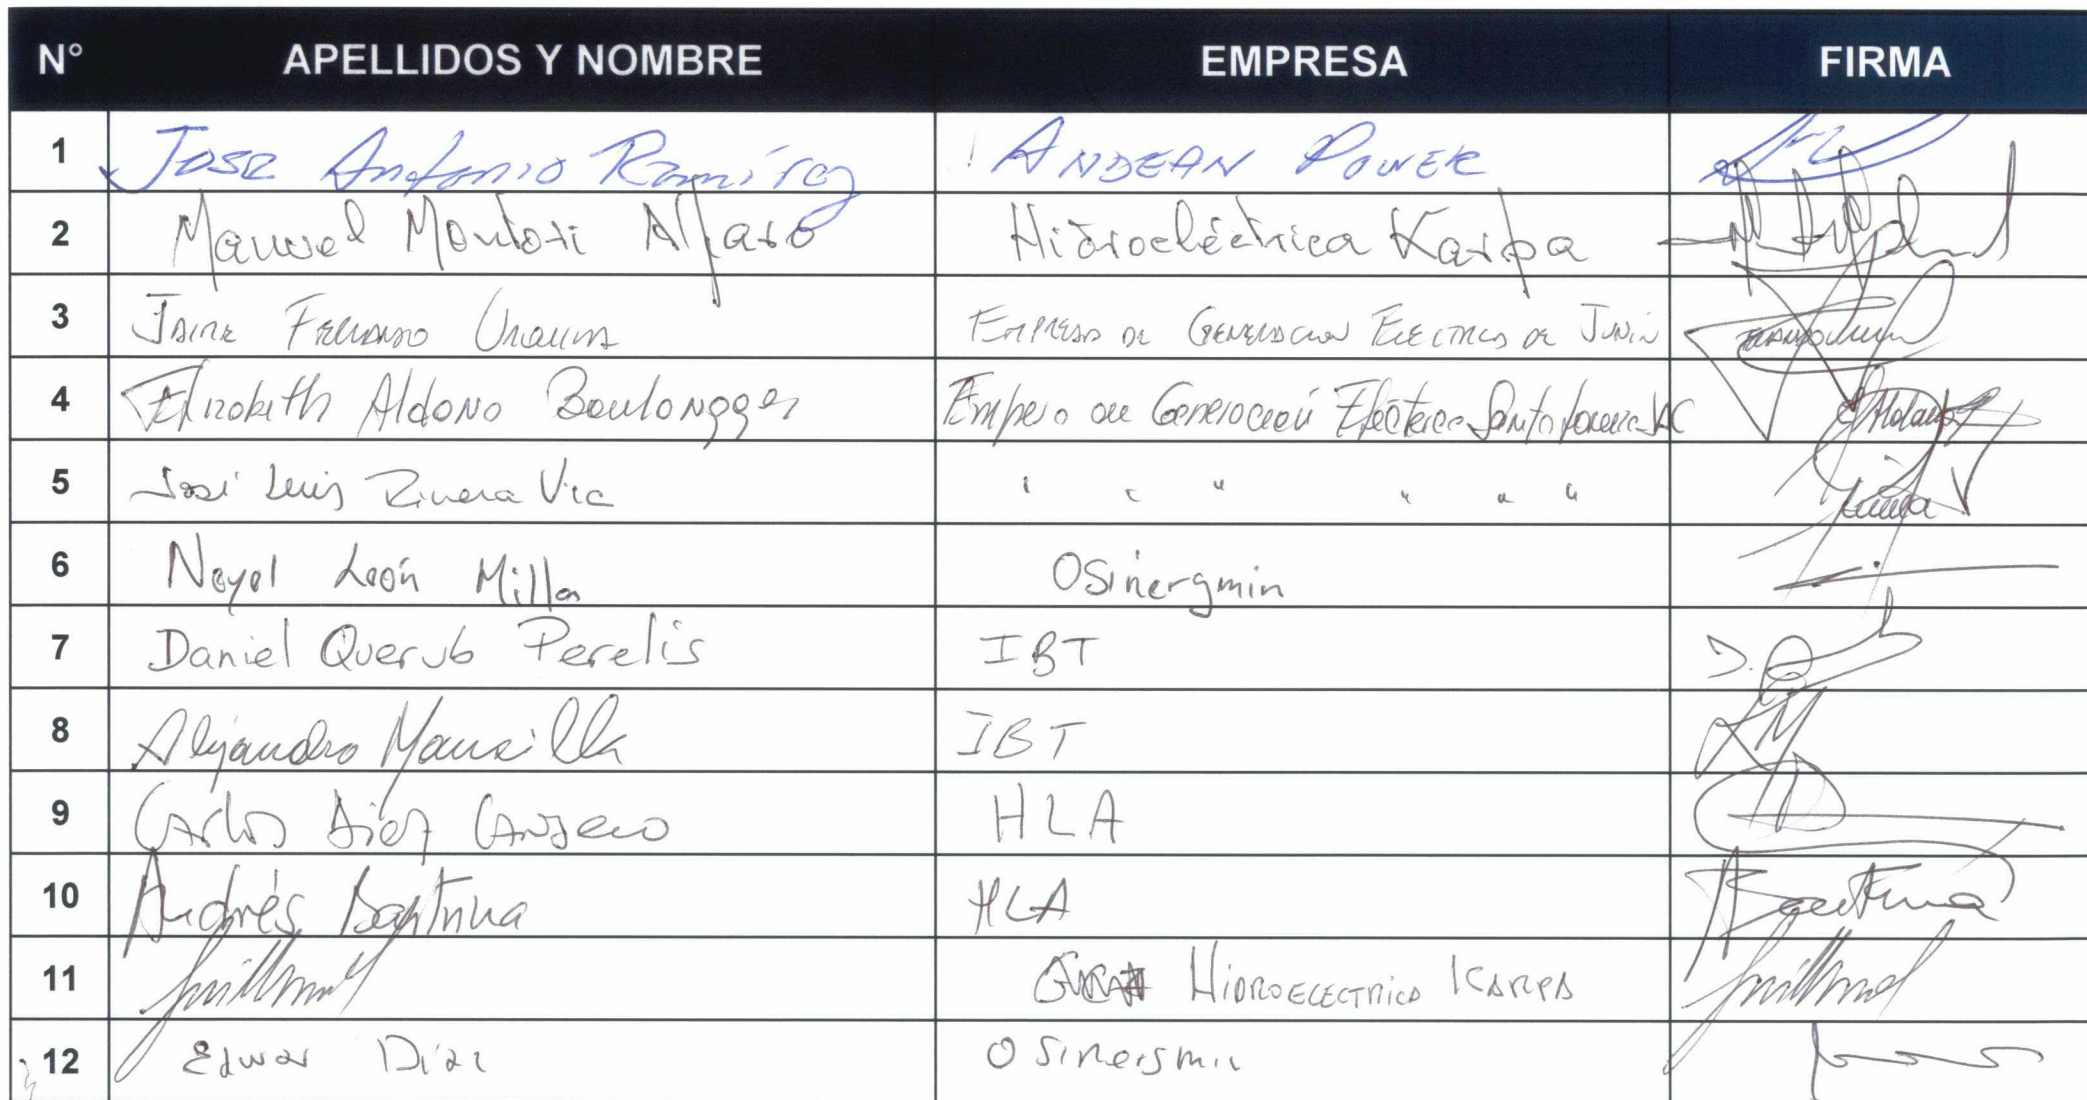 N° APELLIDOS Y NOMBRE EMPRESA FIRMA
1 Jose Antonio Ramírez ANDEAN POWER
2 Manuel Montori Alfaro Hidroeléctrica Karpa
3 JAIME FERNANDO URQUIZA EMPRESA DE GENERACION ELECTRICA DE JUNIN
4 Elizabeth Aldana Empresa de Generación Eléctrica Santa Lorenza SAC
5 José Luis Rivera " " " " " "
6 Nayel León Milla Osinergmin
7 Daniel Querub Perelis IBT D.Q
8 Alejandro Mansilla IBT
9 Carlos Diez Canseco HLA
10 Andrés Bautista HLA
11 HIDROELECTRICA KARPA
12 Edwar Díaz Osinergmin